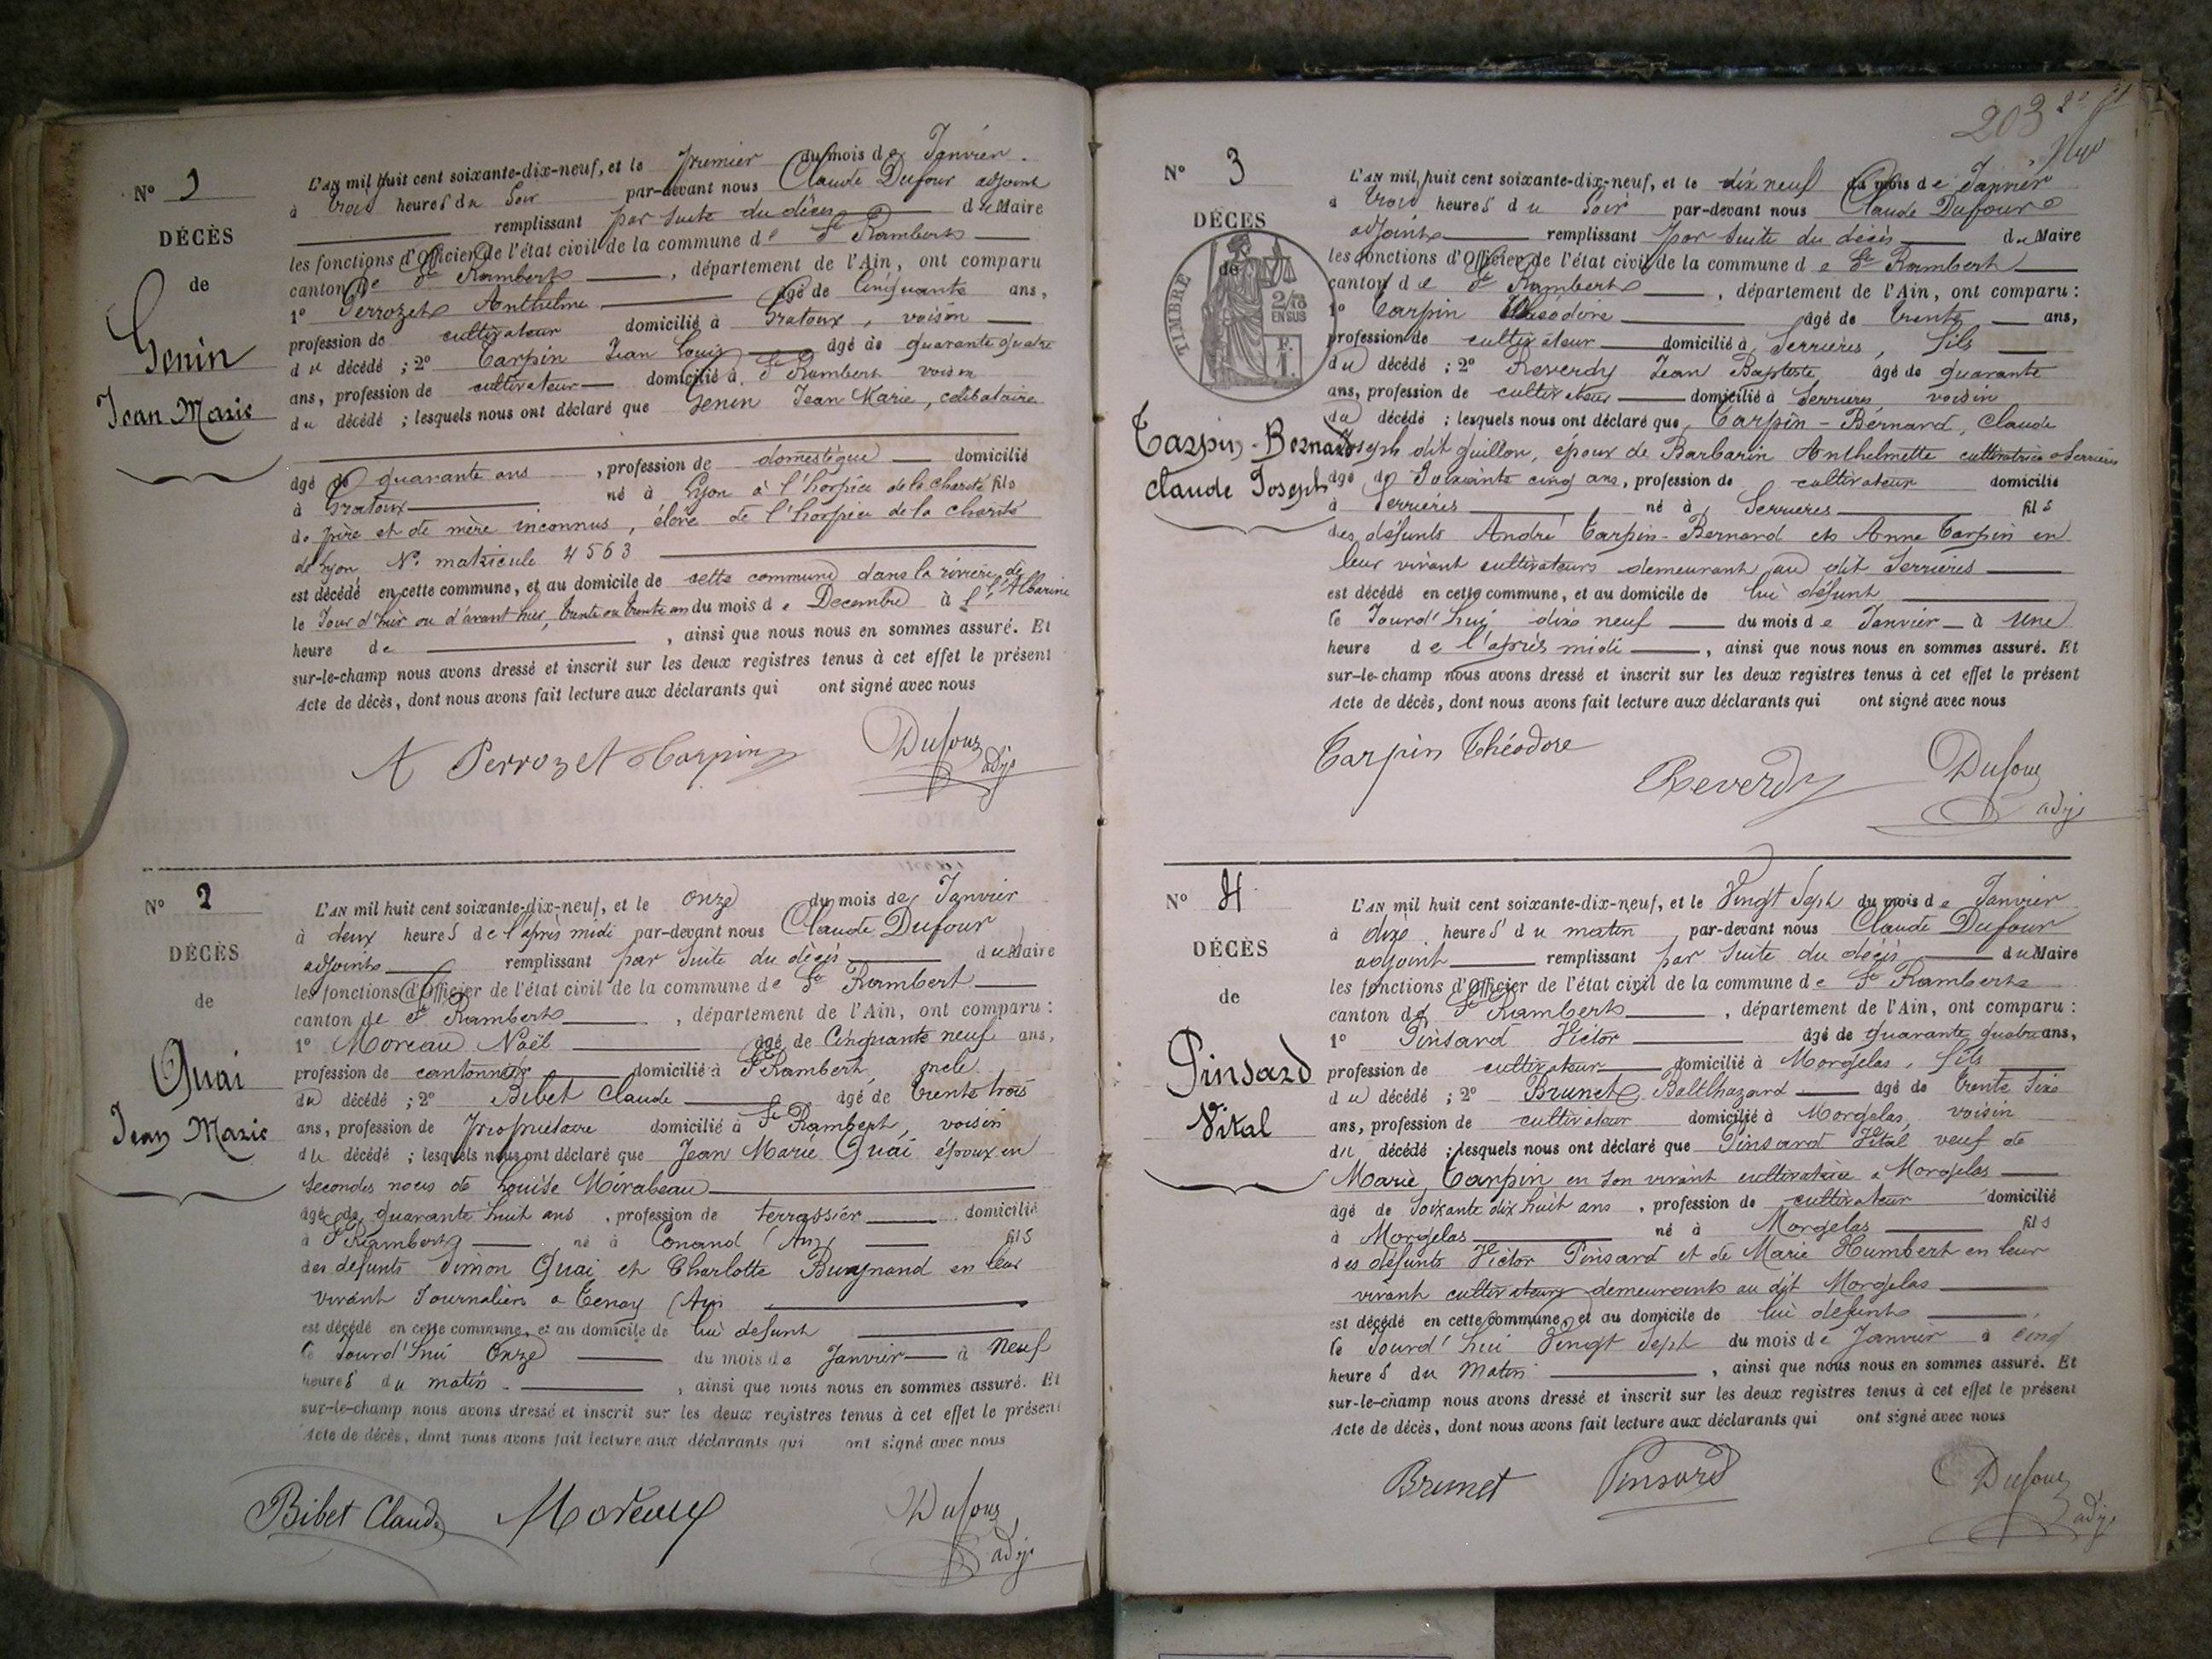 N° 1
DÉCÈS
de
Genin
Jean Marie
L'AN mil huit cent soixante-dix-neuf, et le premier du mois de Janvier
à trois heures du Soir par-devant nous Claude Dufour adjoint
remplissant par suite du décès du Maire
les fonctions d'Officier de l'état civil de la commune de St Rambert
canton de St Rambert, département de l'Ain, ont comparu
1° Perrozet Anthelme âgé de Cinquante ans,
profession de cultivateur domicilié à Gratoux, voisin
du décédé ; 2° Carpin Jean Louis âgé de quarante quatre
ans, profession de cultivateur domicilié à St Rambert voisin
du décédé ; lesquels nous ont déclaré que Genin Jean Marie, célibataire
âgé de quarante ans, profession de domestique domicilié
à Gratoux né à Lyon à l'hospice de la charité fils
de père et de mère inconnus, élève de l'hospice de la charité
de Lyon N° matricule 4563
est décédé en cette commune, et au domicile de cette commune dans la rivière de l'Albarine
le Jour d'hier ou d'avant hier, trente ou trente un du mois de Decembre à
heure de , ainsi que nous nous en sommes assuré. Et
sur-le-champ nous avons dressé et inscrit sur les deux registres tenus à cet effet le présent
Acte de décès, dont nous avons fait lecture aux déclarants qui ont signé avec nous
A Perrozet Carpin Dufour adj
N° 2
DÉCÈS
de
Quai
Jean Marie
L'AN mil huit cent soixante-dix-neuf, et le onze du mois de Janvier
à deux heures de l'après midi par-devant nous Claude Dufour
adjoint remplissant par suite du décès du Maire
les fonctions d'Officier de l'état civil de la commune de St Rambert
canton de St Rambert, département de l'Ain, ont comparu :
1° Moreau Noël âgé de Cinquante neuf ans,
profession de cantonnier domicilié à St Rambert, oncle
du décédé ; 2° Bibet Claude âgé de trente trois
ans, profession de Propriétaire domicilié à St Rambert, voisin
du décédé ; lesquels nous ont déclaré que Jean Marie Quai époux en
secondes noces de Louise Mirabeau
âgé de quarante huit ans, profession de terrassier domicilié
à St Rambert né à Conand (Ain) fils
des défunts Simon Quai et Charlotte Bugnand en leur
vivant Journaliers a Tenay (Ain
est décédé en cette commune, et au domicile de lui defunt
le Jourd'hui Onze du mois de Janvier à Neuf
heures du matin , ainsi que nous nous en sommes assuré. Et
sur-le-champ nous avons dressé et inscrit sur les deux registres tenus à cet effet le présent
Acte de décès, dont nous avons fait lecture aux déclarants qui ont signé avec nous
Bibet Claude Moreau Dufour adj
203
N° 3
DÉCÈS
de
TIMBRE
2/10 EN SUS
F. 1.
Carpin-Bernard
Claude Joseph
L'AN mil huit cent soixante-dix-neuf, et le dix neuf du mois de Janvier
à trois heures du Soir par-devant nous Claude Dufour
adjoint remplissant par suite du décès du Maire
les fonctions d'Officier de l'état civil de la commune de St Rambert
canton de St Rambert, département de l'Ain, ont comparu :
1° Carpin Théodore âgé de trente ans,
profession de cultivateur domicilié à Serrières, fils
du décédé ; 2° Reverdy Jean Baptiste âgé de quarante
ans, profession de cultivateur domicilié à Serrières voisin
du décédé ; lesquels nous ont déclaré que Carpin-Bernard, Claude
Joseph dit guillon, époux de Barbarin Anthelmette cultivatrice a Serrières
âgé de Soixante cinq ans, profession de cultivateur domicilié
à Serrières né à Serrières fils
des défunts André Carpin-Bernard et Anne Carpin en
leur vivant cultivateurs demeurant au dit Serrières
est décédé en cette commune, et au domicile de lui défunt
le Jourd'hui dix neuf du mois de Janvier à Une
heure de l'après midi , ainsi que nous nous en sommes assuré. Et
sur-le-champ nous avons dressé et inscrit sur les deux registres tenus à cet effet le présent
Acte de décès, dont nous avons fait lecture aux déclarants qui ont signé avec nous
Carpin Théodore Reverdy Dufour adj
N° 4
DÉCÈS
de
Pinsard
Vital
L'AN mil huit cent soixante-dix-neuf, et le Vingt Sept du mois de Janvier
à dix heures du matin par-devant nous Claude Dufour
adjoint remplissant par suite du décès du Maire
les fonctions d'Officier de l'état civil de la commune de St Rambert
canton de St Rambert, département de l'Ain, ont comparu :
1° Pinsard Victor âgé de quarante quatre ans,
profession de cultivateur domicilié à Morgelas, fils
du décédé ; 2° Brunet Balthazard âgé de trente Six
ans, profession de cultivateur domicilié à Morgelas, voisin
du décédé ; lesquels nous ont déclaré que Pinsard Vital veuf de
Marie Carpin en son vivant cultivatrice a Morgelas
âgé de Soixante dix huit ans, profession de cultivateur domicilié
à Morgelas né à Morgelas fils
des défunts Victor Pinsard et de Marie Humbert en leur
vivant cultivateurs demeurants au dit Morgelas
est décédé en cette commune, et au domicile de lui defunt
le Jourd'hui Vingt Sept du mois de Janvier à cinq
heures du Matin , ainsi que nous nous en sommes assuré. Et
sur-le-champ nous avons dressé et inscrit sur les deux registres tenus à cet effet le présent
Acte de décès, dont nous avons fait lecture aux déclarants qui ont signé avec nous
Brunet Pinsard Dufour adj